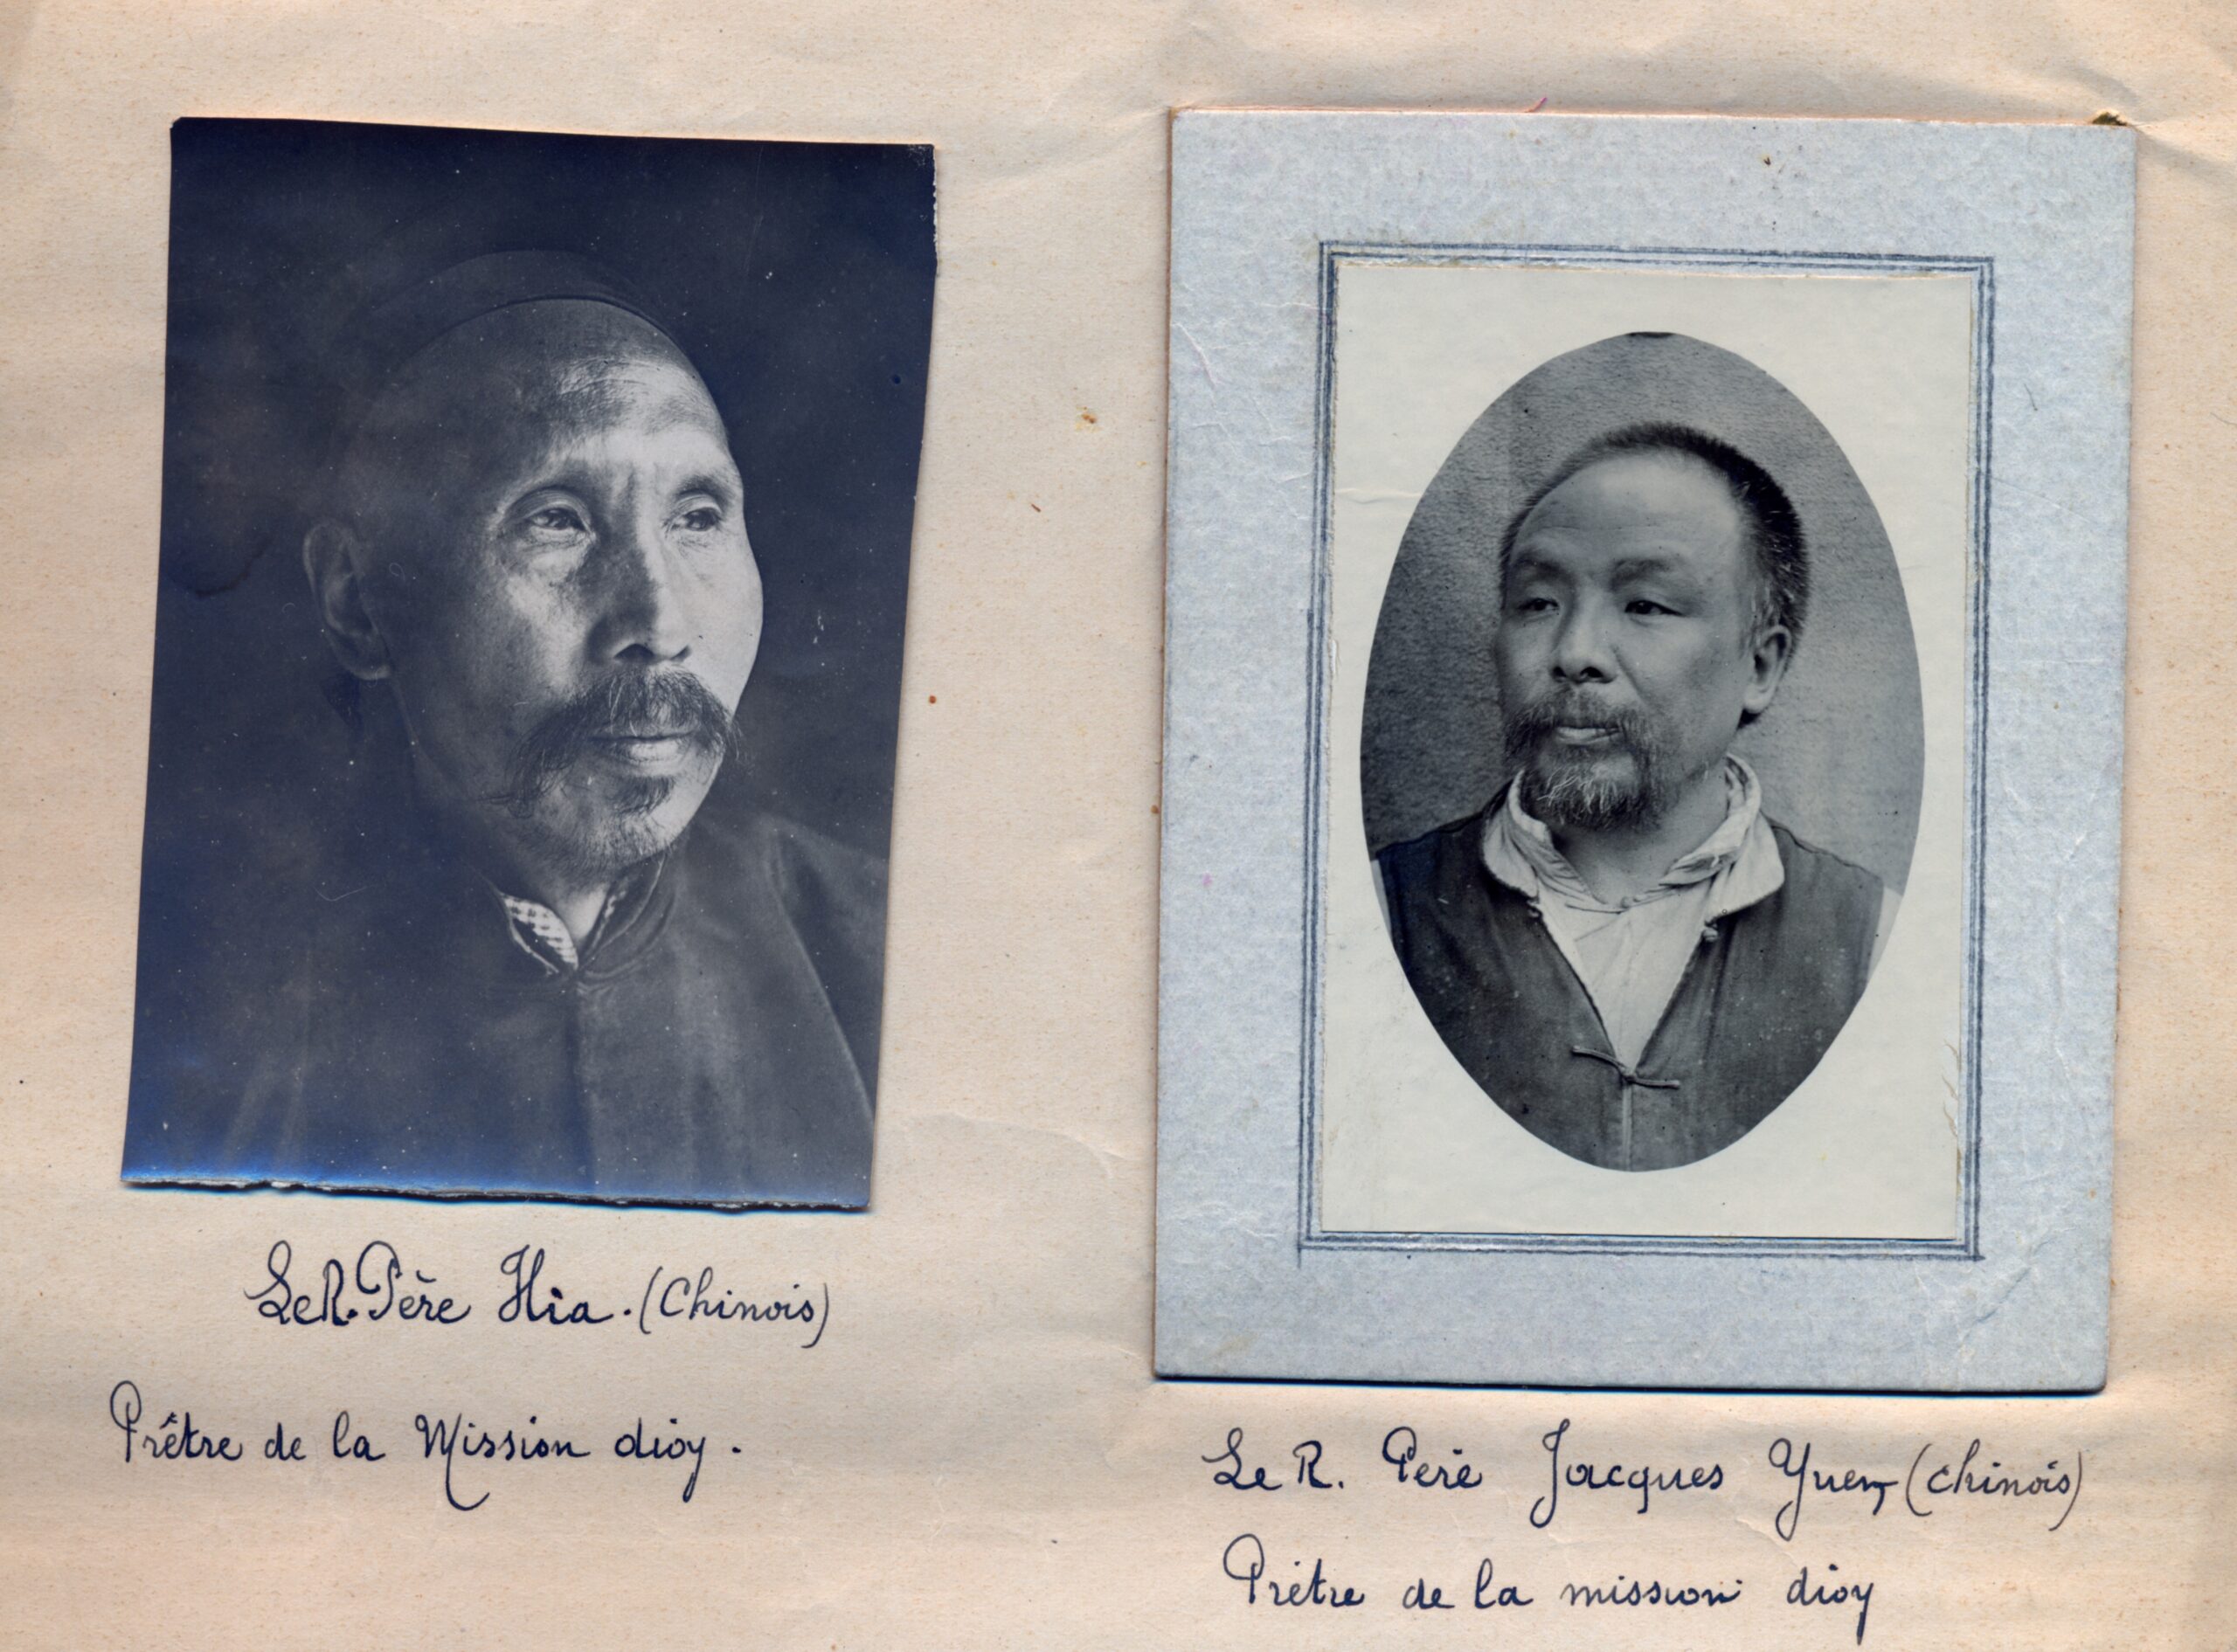 Le R. Père Hia. (Chinois)
Prêtre de la Mission dioy.
Le R. Père Jacques Yuen (chinois)
Prêtre de la mission dioy